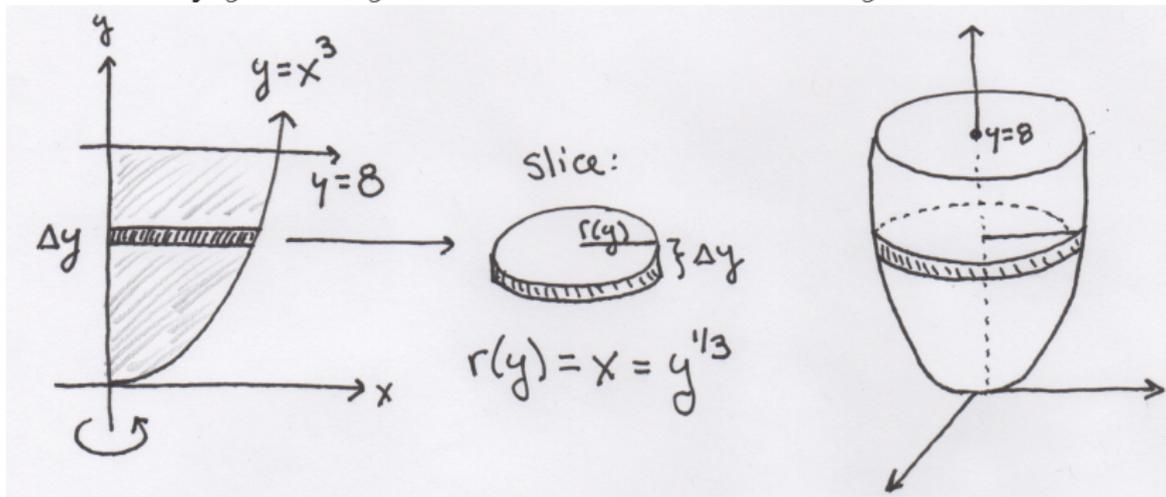 y
y=x³
y=8
Δy
x
slice:
r(y)
} Δy
r(y) = x = y^1/3
y=8